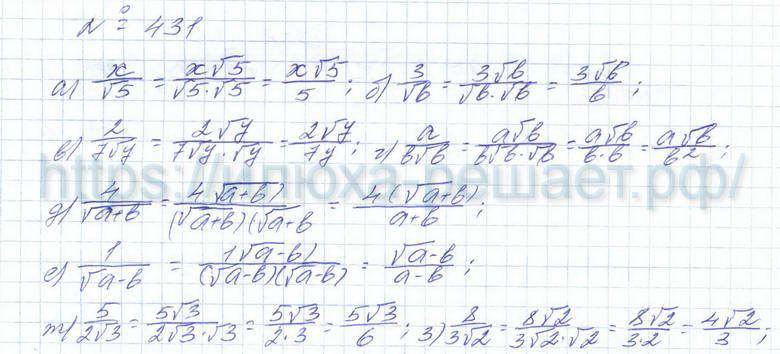 № 431
а) x/√5 = x√5/√5·√5 = x√5/5; б) 3/√b = 3√b/√b·√b = 3√b/b;
в) 2/7√y = 2√y/7√y·√y = 2√y/7y; г) a/b√b = a√b/b√b·√b = a√b/b·b = a√b/b²;
https://илюха-решает.рф/
д) 4/√a+b = 4√a+b)/(√a+b)(√a+b = 4(√a+b)/a+b;
е) 1/√a-b = 1√a-b)/(√a-b)(√a-b) = √a-b/a-b;
ж) 5/2√3 = 5√3/2√3·√3 = 5√3/2·3 = 5√3/6; з) 8/3√2 = 8√2/3√2·√2 = 8√2/3·2 = 4√2/3;